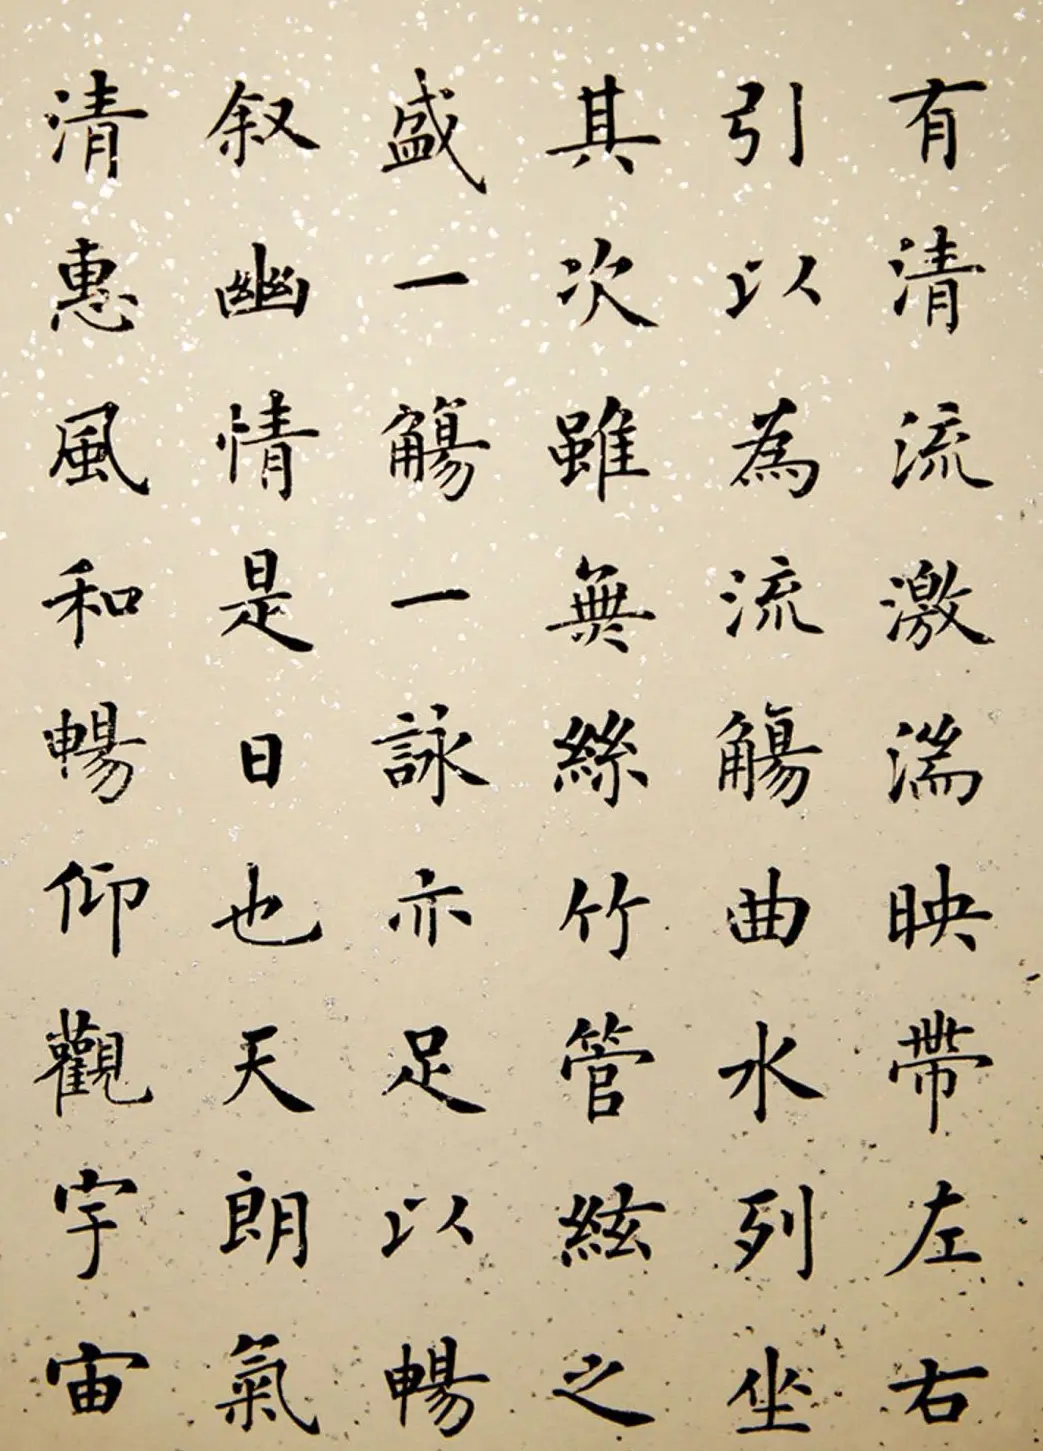 有清流激湍映帶左右
引以為流觴曲水列坐
其次雖無絲竹管絃之
盛一觴一詠亦足以暢
叙幽情是日也天朗氣
清惠風和暢仰觀宇宙